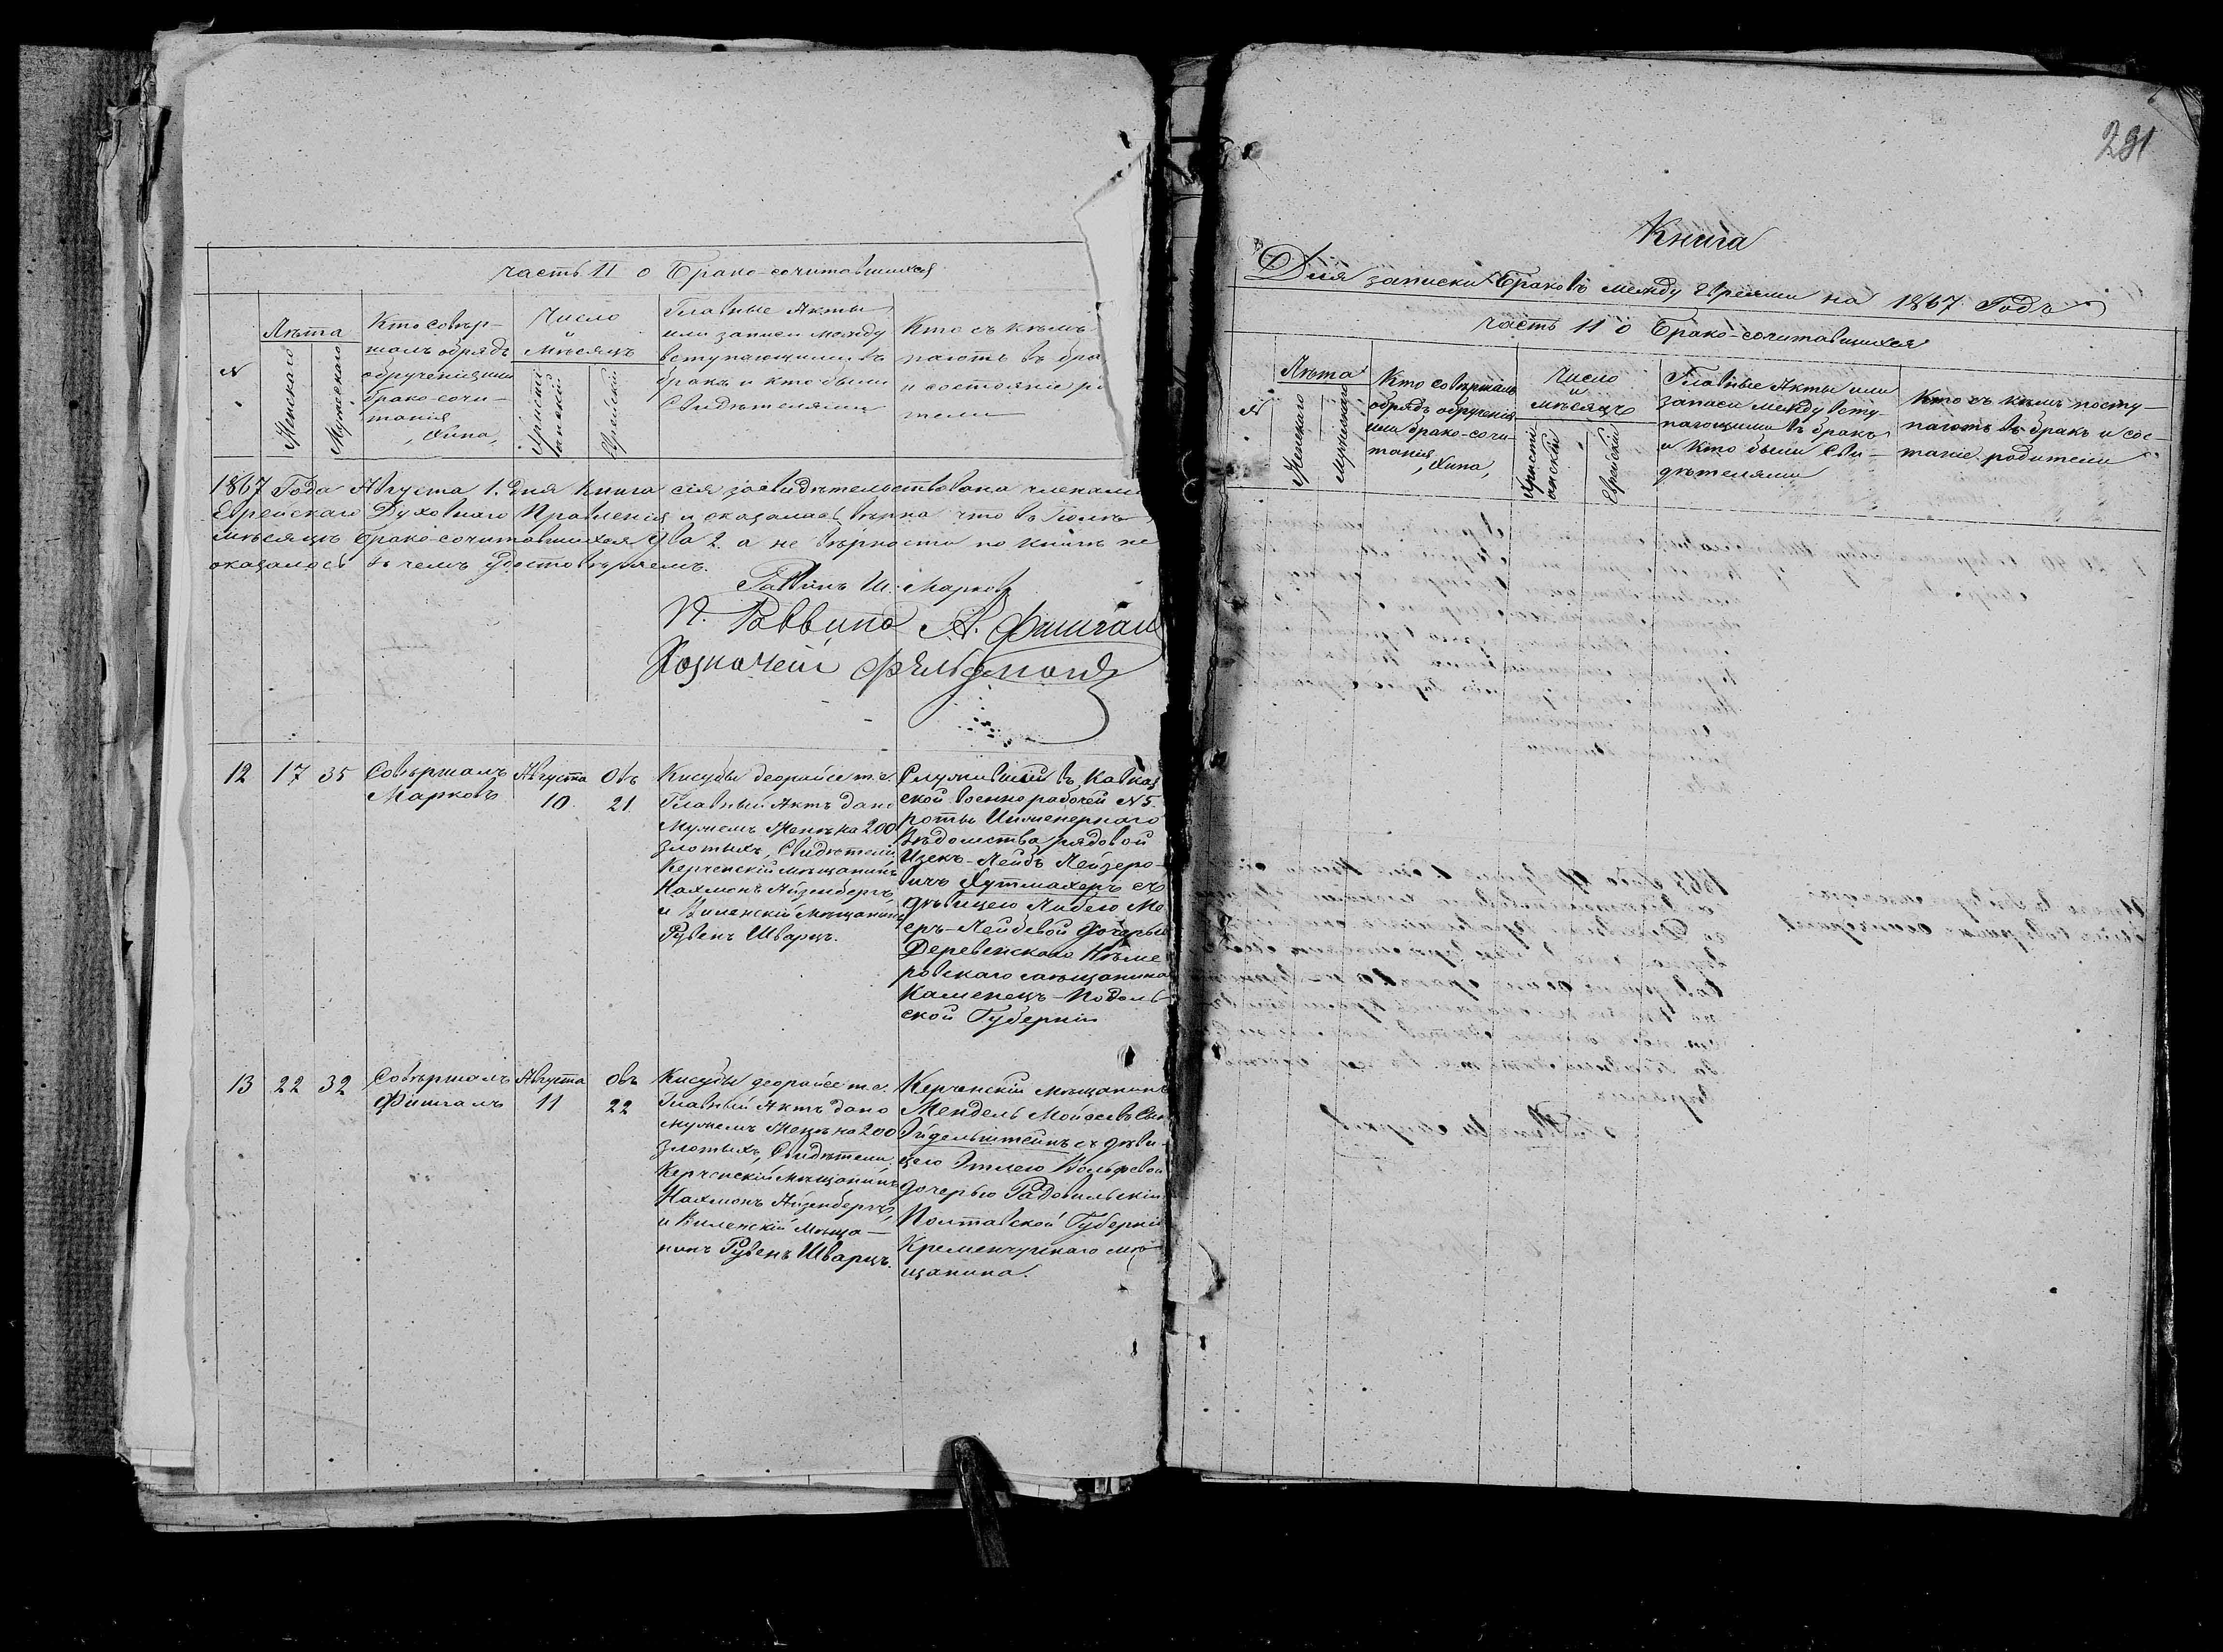 часть II о Брако-сочитавшихся
№
Лѣта
Женскаго
Мужескаго
Кто совѣр-
шалъ обрядъ
обрученія или
брако-сочи-
танія
Хипа,
Число
и
мѣсяцъ
Христі
анскій
Еврейскій
Главные Акты
или записи между
вступающими въ
бракъ и кто были
Свидѣтелями
Кто съ кѣмъ
паютъ въ бра
и состояніе ро
тели
1867 Года Августа 1. дня Книга сія засвидѣтельствована членами
Еврейскаго Духовнаго Правленія и оказалась вѣрна что въ Іюлѣ
мѣсяцѣ брако-сочитавшихся два 2. а не вѣрности по книгѣ не
оказалось въ чемъ удостовѣряемъ.
Равинъ Ш. Марковъ
П. Раввина А. Фишгаль
Казначей Фельдманъ
12 17 35
Совѣршалъ
Марковъ
Августа
10
Овъ
21
Кисубы деорайсе т.е.
Главный Актъ дано
Мужемъ Женѣ на 200
злотыхъ, Свидѣтели
Керченскій мѣщанинъ
Нахманъ Айзенбергъ,
и Виленскій мѣщанинъ
Рувенъ Шварцъ.
Служившій въ Кавказ
ской военнорабочей № 5.
роты Инженернаго
Вѣдомства рядовой
Изекъ-Лейбъ Лейзеро-
вичъ Хутмахеръ съ
дѣвицею Либею Ме
еръ-Лейбовой дочерью
Деревенскаго
ровскаго мѣщанина
Каменецъ-Подоль
ской Губерніи
13 22 32
Совѣршалъ
Фишгалъ
Августа
11
Овъ
22
Кисубы деорайсе т.е.
Главный Актъ дано
мужемъ Женѣ на 200
злотыхъ, Свидѣтели,
Керченскій мѣщанинъ
Нахманъ Айзенбергъ,
и Виленскій мѣща-
нинъ Рувенъ Шварцъ.
Керченскій мѣщанинъ
Мендель Мойсеевъ Сынъ
Эйдельштейнъ съ дѣви-
цею Этлею Вольфовой
дочерью Радовильскій
Полтавской Губерніи
Кременчугскаго мѣ
щанина.
291
Книга
Для записки Браковъ между Евреями на 1867 Годъ
часть II о Брако-сочитавшихся
№
Лѣта
Женскаго
Мужескаго
Кто совѣршалъ
обрядъ обрученія
или брако-сочи-
танія
Хипа,
Число
и
мѣсяцъ
Христі
анскій
Еврейскій
Главные Акты или
записи между всту-
пающими въ бракъ
и кто были Сви-
дѣтелями
Кто съ кѣмъ посту-
паютъ въ бракъ и сос-
таніе родители